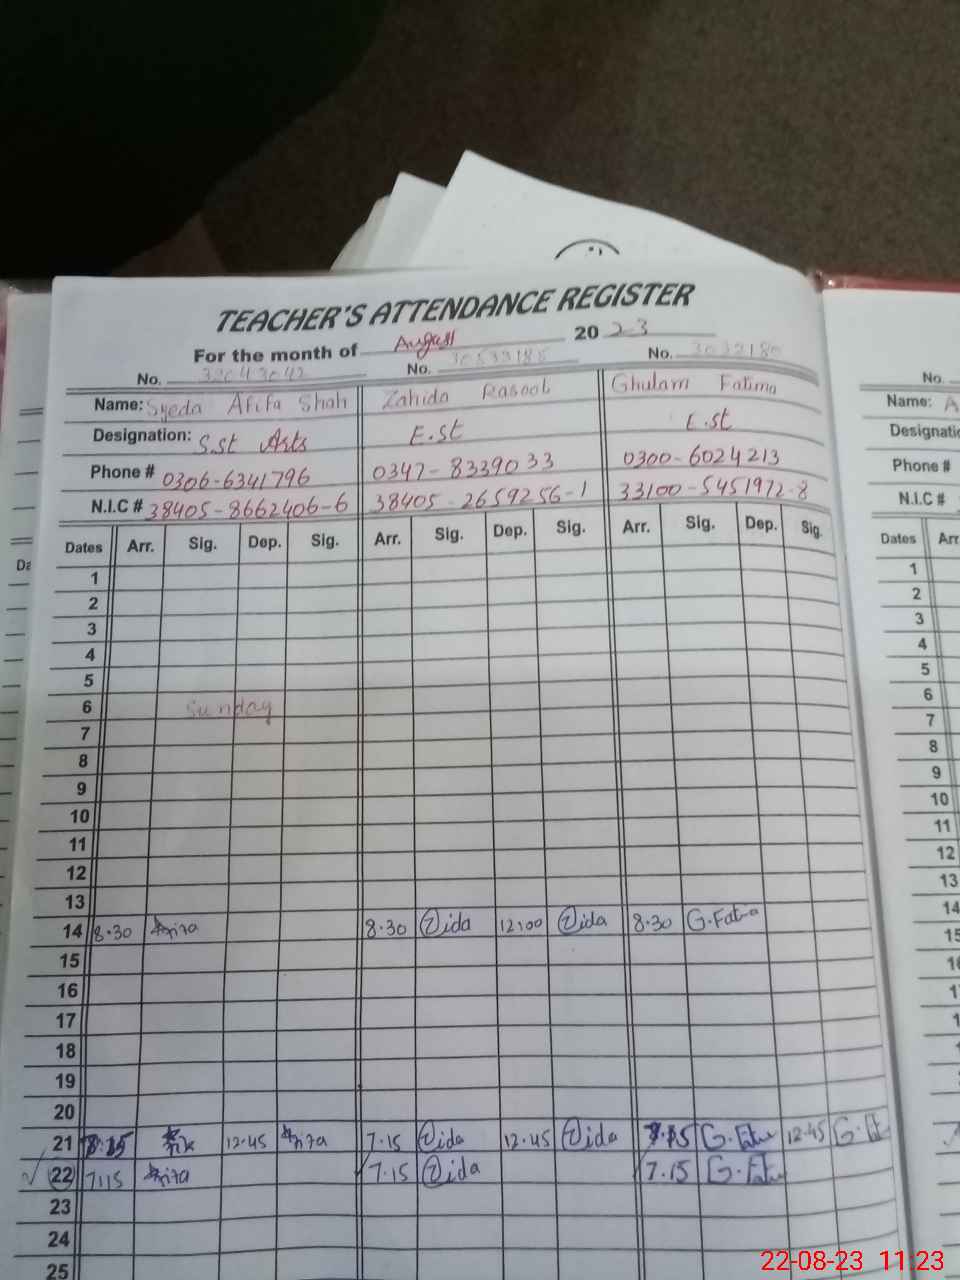 TEACHER'S ATTENDANCE REGISTER
For the month of August 2023
No. 32043042 No. 30533185 No. 3032180
Name: Syeda Afifa Shah Zahida Rasool Ghulam Fatima
Designation: S.st Arts E.st E.st
Phone # 0306-6341796 0347-8339033 0300-6024213
N.I.C # 38405-8662406-6 38405-2659256-1 33100-5451972-8
Dates Arr. Sig. Dep. Sig. Arr. Sig. Dep. Sig. Arr. Sig. Dep. Sig.
1
2
3
4
5
6 Sunday
7
8
9
10
11
12
13
14 8.30 8.30 Zida 12:00 Zida 8.30 G.Fatima
15
16
17
18
19
20
21 12.45 7.15 Zida 12.45 Zida 7.15 G.Fatima 12.45
22 7:15 7.15 Zida 7.15 G.Fatima
23
24
25
No.
Name: A
Designatio
Phone #
N.I.C #
Dates Arr
1
2
3
4
5
6
7
8
9
10
11
12
13
14
15
22-08-23 11:23